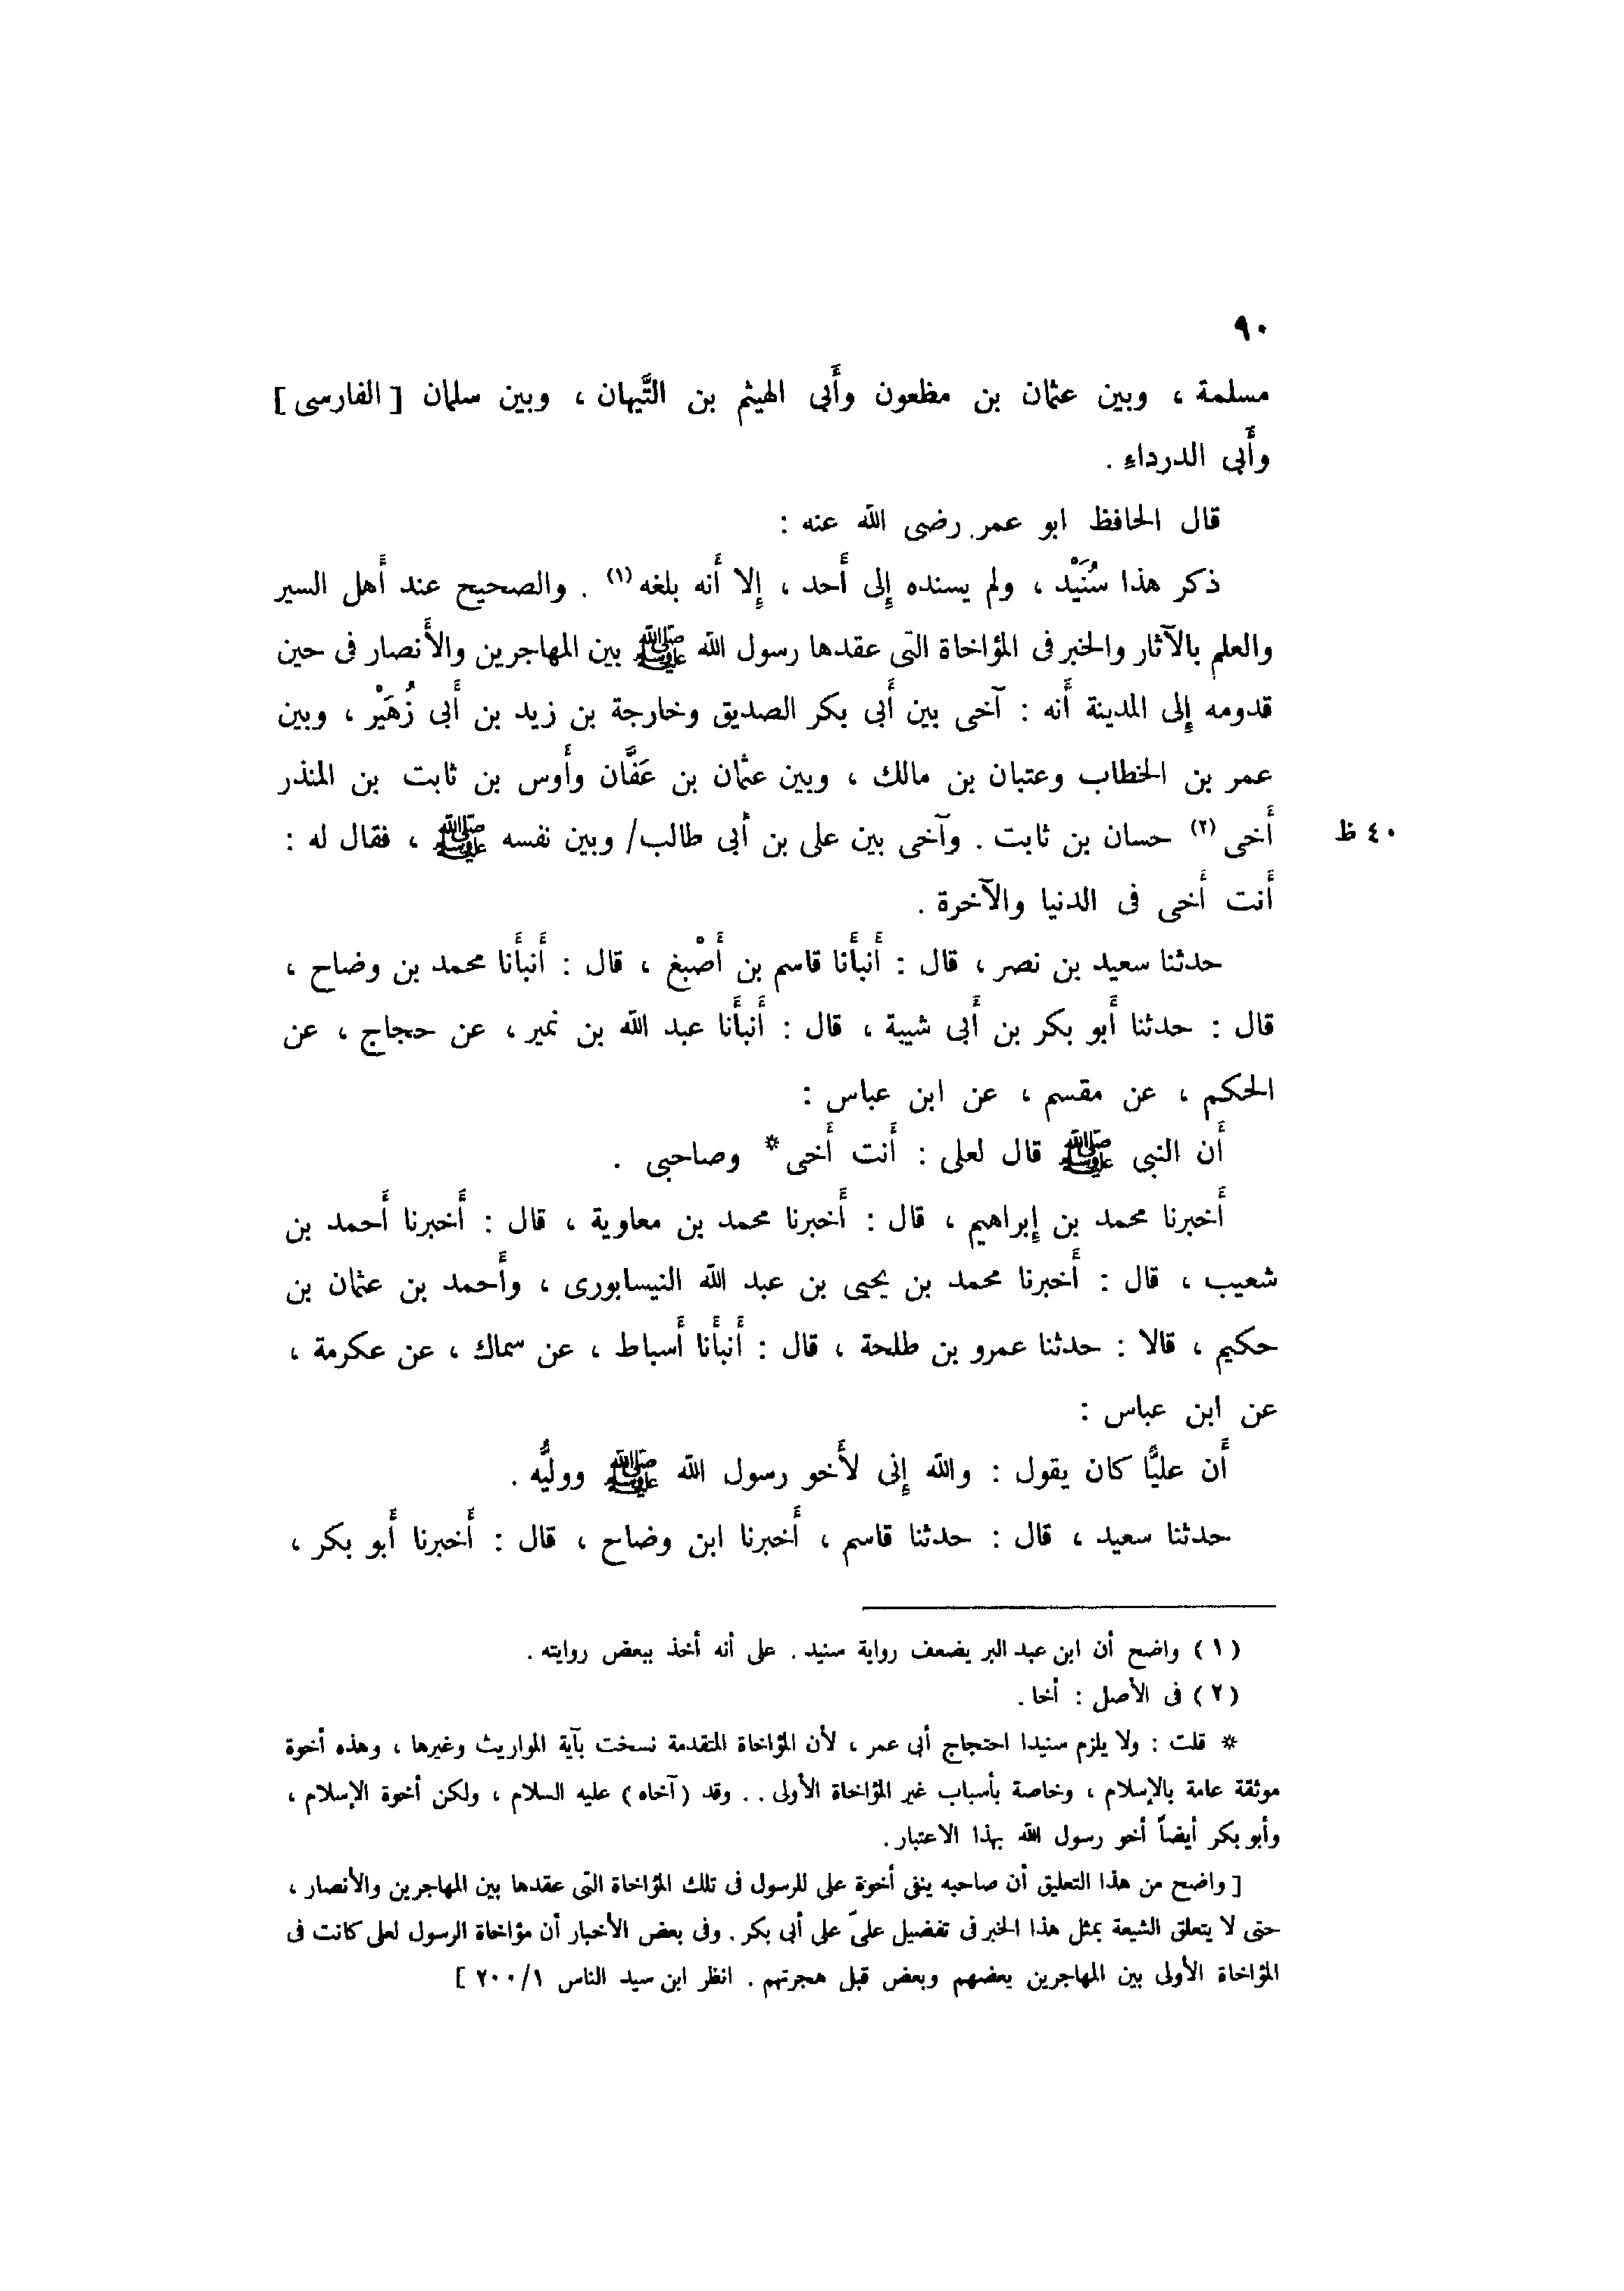 ٩٠
مسلمة ، وبين عثمان بن مظعون وأَبى الهيثم بن التَّيهان ، وبين سلمان [ الفارسى ]
وأَبى الدرداءِ .
قال الحافظ ابو عمر رضى الله عنه :
ذكر هذا سُنَيْد ، ولم يسنده إِلى أَحد ، إِلا أَنه بلغه (١) . والصحيح عند أَهل السير
والعلم بالآثار والخبر فى المؤاخاة التى عقدها رسول الله ﷺ بين المهاجرين والأَنصار فى حين
قدومه إِلى المدينة أَنه : آخى بين أَبى بكر الصديق وخارجة بن زيد بن أَبى زُهَيْر ، وبين
عمر بن الخطاب وعتبان بن مالك ، وبين عثمان بن عَفَّان وأَوس بن ثابت بن المنذر
أَخى (٢) حسان بن ثابت . وآخى بين على بن أَبى طالب/ وبين نفسه ﷺ ، فقال له :
٤٠ ظ
أَنت أَخى فى الدنيا والآخرة .
حدثنا سعيد بن نصر ، قال : أَنبأَنا قاسم بن أَصْبغ ، قال : أَنبأَنا محمد بن وضاح ،
قال : حدثنا أَبو بكر بن أَبى شيبة ، قال : أَنبأَنا عبد الله بن نمير ، عن حجاج ، عن
الحكم ، عن مقسم ، عن ابن عباس :
أَن النبى ﷺ قال لعلى : أَنت أَخى * وصاحبى .
أَخبرنا محمد بن إِبراهيم ، قال : أَخبرنا محمد بن معاوية ، قال : أَخبرنا أَحمد بن
شعيب ، قال : أَخبرنا محمد بن يحيى بن عبد الله النيسابورى ، وأَحمد بن عثمان بن
حكيم ، قالا : حدثنا عمرو بن طلحة ، قال : أَنبأَنا أَسباط ، عن سماك ، عن عكرمة ،
عن ابن عباس :
أَن عليًّا كان يقول : والله إِنى لأَخو رسول الله ﷺ ووليُّه .
حدثنا سعيد ، قال : حدثنا قاسم ، أَخبرنا ابن وضاح ، قال : أَخبرنا أَبو بكر ،
( ١ ) واضح أن ابن عبد البر يضعف رواية سنيد . على أنه أخذ ببعض روايته .
( ٢ ) فى الأصل : أخا .
* قلت : ولا يلزم سنيدا احتجاج أبى عمر ، لأن المؤاخاة المتقدمة نسخت بآية المواريث وغيرها ، وهذه أخوة
موثقة عامة بالإسلام ، وخاصة بأسباب غير المؤاخاة الأولى . . وقد ( آخاه ) عليه السلام ، ولكن أخوة الإسلام ،
وأبو بكر أيضاً أخو رسول الله بهذا الاعتبار .
[ واضح من هذا التعليق أن صاحبه ينفى أخوة على للرسول فى تلك المؤاخاة التى عقدها بين المهاجرين والأنصار ،
حتى لا يتعلق الشيعة بمثل هذا الخبر فى تفضيل علىّ على أبى بكر . وفى بعض الأخبار أن مؤاخاة الرسول لعلى كانت فى
المؤاخاة الأولى بين المهاجرين بعضهم وبعض قبل هجرتهم . انظر ابن سيد الناس ٢٠٠/١ ]